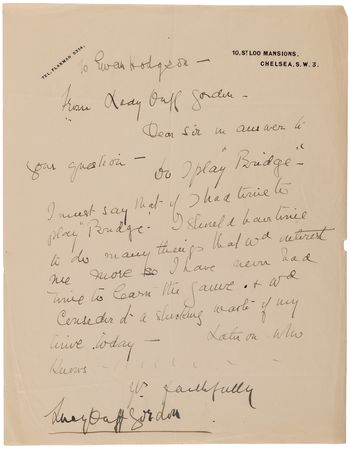 TEL. FLAXMAN 5314.
10, ST LOO MANSIONS,
CHELSEA, S.W. 3.
To Ewan Hodgson –
From Lady Duff Gordon –
Dear Sir in answer to
your question – Do I play "Bridge" –
I must say that if I had time to
play "Bridge" I should have time
to do many things that wd interest
me more so I have never had
time to learn the game. & wd
Consider'd a shocking waste of my
time today – Later on who
Knows
Yrs faithfully
Lucy Duff Gordon